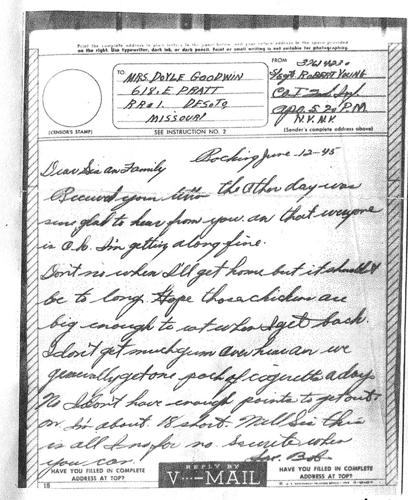 Print the complete address in plain letters in the panel below, and your return address in the space provided
on the right. Use typewriter, dark ink, or dark pencil. Faint or small writing is not suitable for photographing.
TO:
MRS. DOYLE GOODWIN
618. E PRATT
RR#1. DESOTO
MISSOURI
FROM
S/Sgt ROBERT YOUNG
APO.
N.Y. N.Y.
(CENSOR'S STAMP)
SEE INSTRUCTION NO. 2
(Sender's complete address above)
June - 12 - 45
Dear Sis an Family
Received your letter the other day was
sure glad to hear from you. an that everyone
is O.k. I'm getting along fine.
Don't no when I'll get home but it should
be to long. Hope those chickens are
big enough to eat when I get back.
I don't get much gum over here an we
generally get one pack of cigarette a day.
No I don't have enough points to get out
on I'm about 18 short. Well Sis this
is all I no for no. so write when
you can. Bob
HAVE YOU FILLED IN COMPLETE
ADDRESS AT TOP?
REPLY BY
V···—MAIL
HAVE YOU FILLED IN COMPLETE
ADDRESS AT TOP?